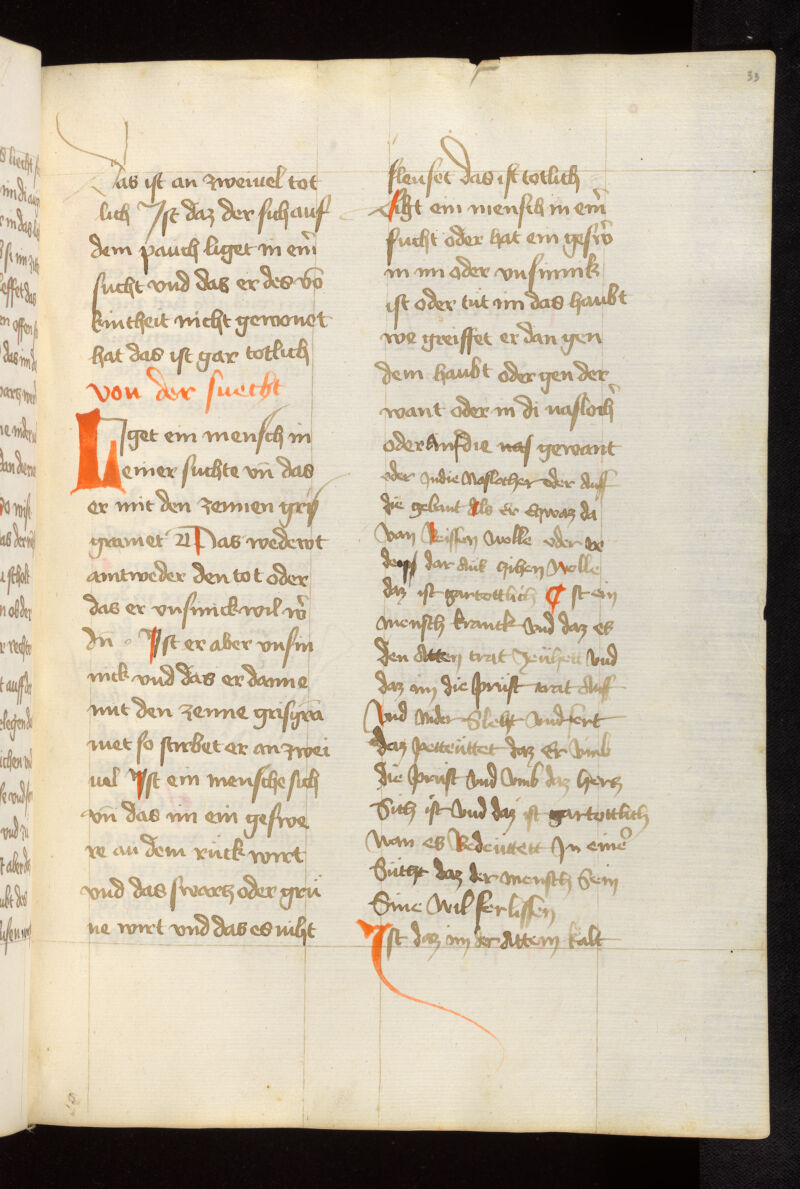 33
Das ist an zweiuel tot
lich Ist daz der sich auf
dem pauch liget in em̄
sucht vnd das er des vō
kintheit nicht gewonet
hat das ist gar totlich
von der suecht
Liget ein mensch in
einer suchte vn̄ das
er mit den zennen gris
gramet Das wedewt
aintweder den tot oder
das er vnsinick wil w̄
dn Ist er aber vnsin
nick vnd das er danne
mit den zenne grisgra
met so stirbet er an zwei
uel Ist ein mensche sich
vn̄ das im ein geswe
re an dem rück wirt
vnd das swartz oder grü
ne wirt vnd das es niht
fleuset das ist totlich
Liht ein mensch in em̄
sucht oder hat ein gesw̄
in im oder vnsinnik
ist oder tüt im das haubt
we greiffet er dan gen
dem haubt oder gen der
want oder in di nasloch̄
oder auf die nas gewant
oder Indie Naslocher oder Auff
die gebant Als er etwaz da
van Reissen wolle oder
dar Aus zihen Wolle
daz ist gar tottlich Ist ein
mensch kranck Vnd daz es
den Atten trat Zeühett Vnd
daz im die prüst trat Auff
Vnd nider Sleht Vnd fert
daz petteüttet daz Er Vmb
die prüst Vnd Vmb daz hers
Sich ist Vnd daz ist gar tottlich
wan es Bedeüttett In einer
Sücht daz der mensch Sein
Sine Wil ferlissen
Ist daz im der Attem kalt